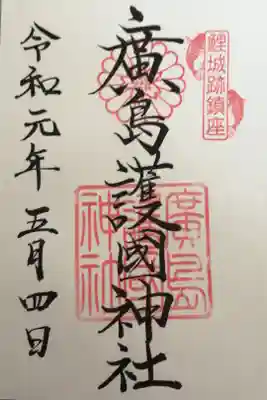 鯉城跡鎮座
廣島護國神社
廣島護國神社
令和元年五月四日